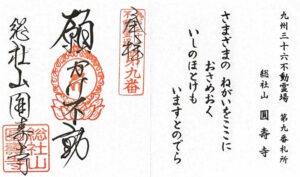 九州三十六不動霊場 第九番札所
総社山 圓寿寺
さまざまの ねがいをここに
おさめおく
いしのほとけも
いますとのでら
奉拝
第九番
願かけ不動
総社山 圓寿寺